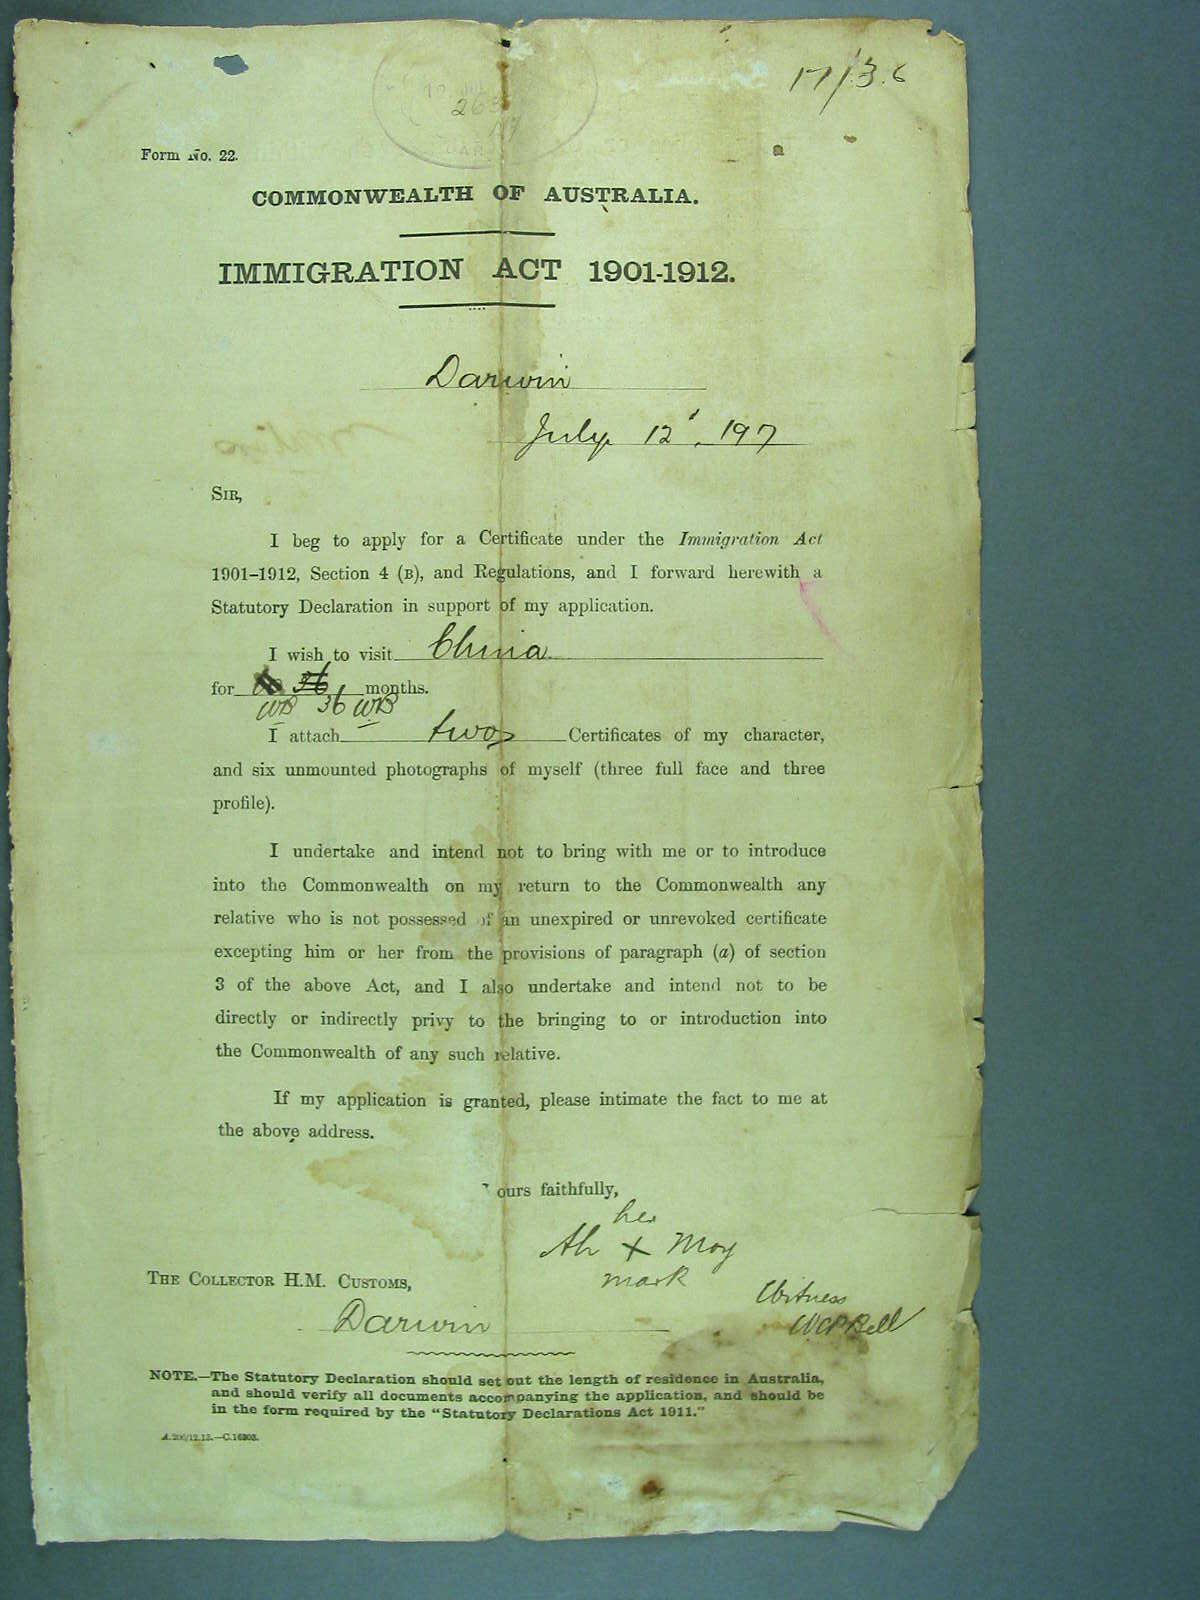 17/3.6
263
17
Form No. 22.
COMMONWEALTH OF AUSTRALIA.
IMMIGRATION ACT 1901-1912.
Darwin
July 12, 197
SIR,
I beg to apply for a Certificate under the Immigration Act
1901-1912, Section 4 (B), and Regulations, and I forward herewith a
Statutory Declaration in support of my application.
I wish to visit China
for 36 months.
WB 36 WB
I attach two Certificates of my character,
and six unmounted photographs of myself (three full face and three
profile).
I undertake and intend not to bring with me or to introduce
into the Commonwealth on my return to the Commonwealth any
relative who is not possessed of an unexpired or unrevoked certificate
excepting him or her from the provisions of paragraph (a) of section
3 of the above Act, and I also undertake and intend not to be
directly or indirectly privy to the bringing to or introduction into
the Commonwealth of any such relative.
If my application is granted, please intimate the fact to me at
the above address.
Yours faithfully,
her
Ah X Moy
mark
THE COLLECTOR H.M. CUSTOMS,
Witness
Darwin
WP Bell
NOTE.—The Statutory Declaration should set out the length of residence in Australia,
and should verify all documents accompanying the application, and should be
in the form required by the "Statutory Declarations Act 1911."